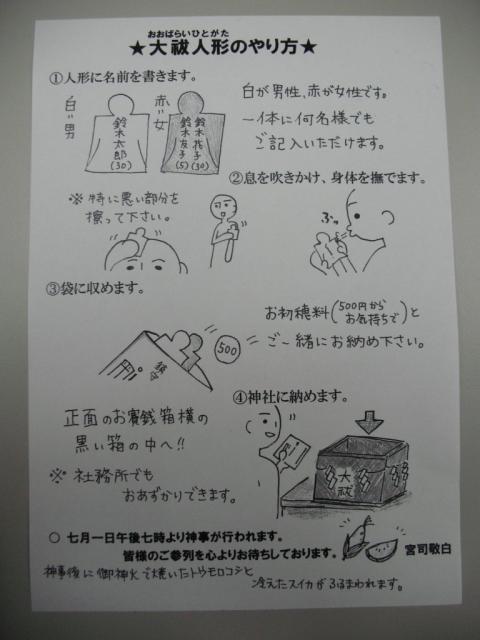 おおばらいひとがた
★大祓人形のやり方★
①人形に名前を書きます。
白=男
鈴木太郎(30)
赤=女
鈴木花子(30)
鈴木友子(5)
白が男性、赤が女性です。
一体に何名様でも
ご記入いただけます。
②息を吹きかけ、身体を撫でます。
※特に悪い部分を
擦って下さい。
ふっ
③袋に収めます。
500
お初穂料(500円からお気持ちで)と
ご一緒にお納め下さい。
④神社に納めます。
正面のお賽銭箱横の
黒い箱の中へ!!
※社務所でも
おあずかりできます。
大祓
○ 七月一日午後七時より神事が行われます。
皆様のご参列を心よりお待ちしております。
宮司敬白
神事後に御神火で焼いたトウモロコシと
冷えたスイカがふるまわれます。